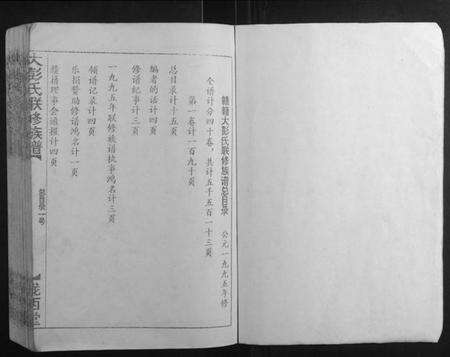 赣籍大彭氏联修族谱总目录 公元一九九五年修
全谱计分四十卷，共计五千五百一十三页
第一卷计一百九十页
总目录计十五页
编者的话计四页
修谱纪事计三页
一九九五年联修族谱执事鸿名计三页
领谱记录计四页
乐捐赞助修谱鸿名计一页
赣籍理事会通报计四页
大彭氏联修族谱
总目录一号
陇西堂